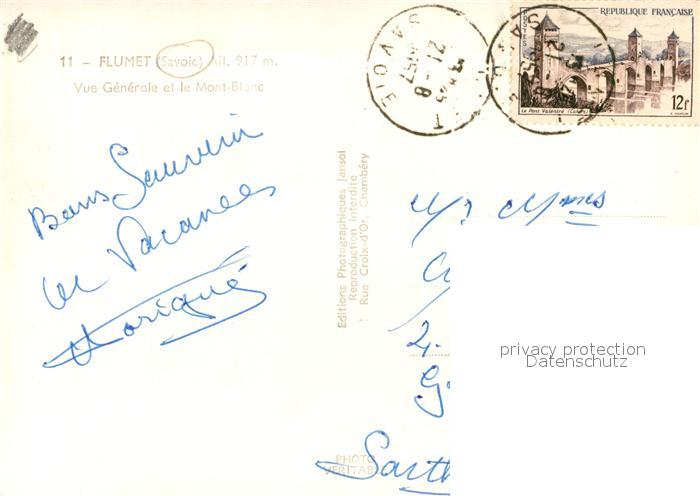 11 - FLUMET (Savoie) Alt. 917 m.
Vue Générale et le Mont-Blanc
Bons Souvenir
de Vacances
Editions Photographiques Jansol
Reproduction interdite
1 Rue Croix-d'Or, Chambéry
PHOTO
VERITABLE
SAVOIE
21 - 8
REPUBLIQUE FRANÇAISE
POSTES
Le Pont Valentré (Cahors)
12f
Mr Mmes
2,
G
Sarth
privacy protection
Datenschutz